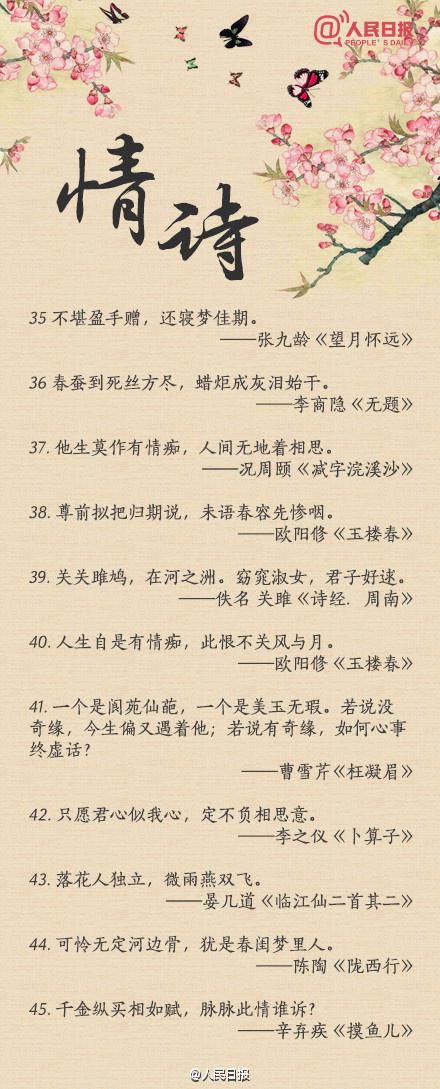 @人民日报
PEOPLE'S DAILY
情诗
35 不堪盈手赠，还寝梦佳期。
——张九龄《望月怀远》
36 春蚕到死丝方尽，蜡炬成灰泪始干。
——李商隐《无题》
37. 他生莫作有情痴，人间无地着相思。
——况周颐《减字浣溪沙》
38. 尊前拟把归期说，未语春容先惨咽。
——欧阳修《玉楼春》
39. 关关雎鸠，在河之洲。窈窕淑女，君子好逑。
——佚名 关雎《诗经．周南》
40. 人生自是有情痴，此恨不关风与月。
——欧阳修《玉楼春》
41. 一个是阆苑仙葩，一个是美玉无瑕。若说没
奇缘，今生偏又遇着他；若说有奇缘，如何心事
终虚话？
——曹雪芹《枉凝眉》
42. 只愿君心似我心，定不负相思意。
——李之仪《卜算子》
43. 落花人独立，微雨燕双飞。
——晏几道《临江仙二首其二》
44. 可怜无定河边骨，犹是春闺梦里人。
——陈陶《陇西行》
45. 千金纵买相如赋，脉脉此情谁诉？
——辛弃疾《摸鱼儿》
@人民日报